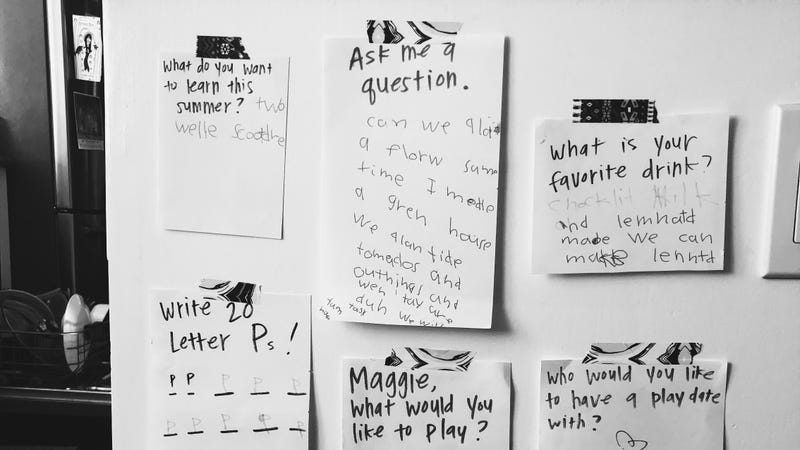 What do you want
to learn this
summer? two
welle scodthe
Ask me a
question.
can we
a florw sum
time I made
a gren house
we plantide
tomados and
outhings and
wen tay are
duh we will
What is your
favorite drink?
chocklit Milk
and lemnatd
made we can
make lenntd
Write 20
Letter Ps!
P P P P P
P P P P P
Maggie,
what would you
like to play?
who would you like
to have a playdate
with?